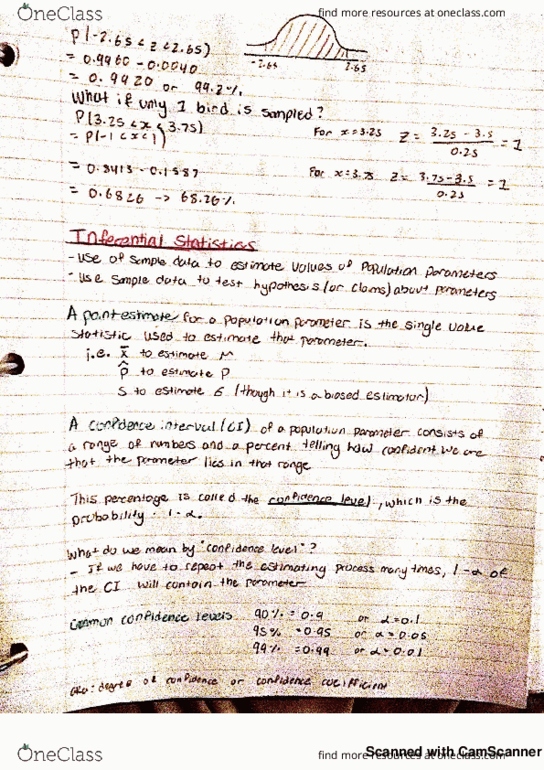 OneClass find more resources at oneclass.com
P(-2.65 < z < 2.65)
-2.65 2.65
= 0.9960 - 0.0040
= 0.9920 or 99.2%
What if only 1 bird is sampled?
P(3.25 < x < 3.75) For x = 3.25 Z = 3.25 - 3.5 / 0.25 = 1
= P(-1 < x < 1)
= 0.8413 - 0.1587 For x = 3.75 Z = 3.75 - 3.5 / 0.25 = 1
= 0.6826 -> 68.26%
Inferential Statistics
- Use of sample data to estimate values of population parameters
- Use sample data to test hypothesis (or claims) about parameters
A point estimate for a population parameter is the single value
statistic used to estimate that parameter.
i.e. x̄ to estimate μ
p̂ to estimate p
s to estimate б (though it is a biased estimator)
A confidence interval (CI) of a population parameter consists of
a range of numbers and a percent telling how confident we are
that the parameter lies in that range
This percentage is called the confidence level, which is the
probability 1-α.
What do we mean by "confidence level"?
- If we have to repeat the estimating process many times, 1-α of
the CI will contain the parameter
Common confidence levels 90% = 0.9 or α = 0.1
95% = 0.95 or α = 0.05
99% = 0.99 or α = 0.01
aka: degree of confidence or confidence coefficient
OneClass find more resources at oneclass.com
Scanned with CamScanner